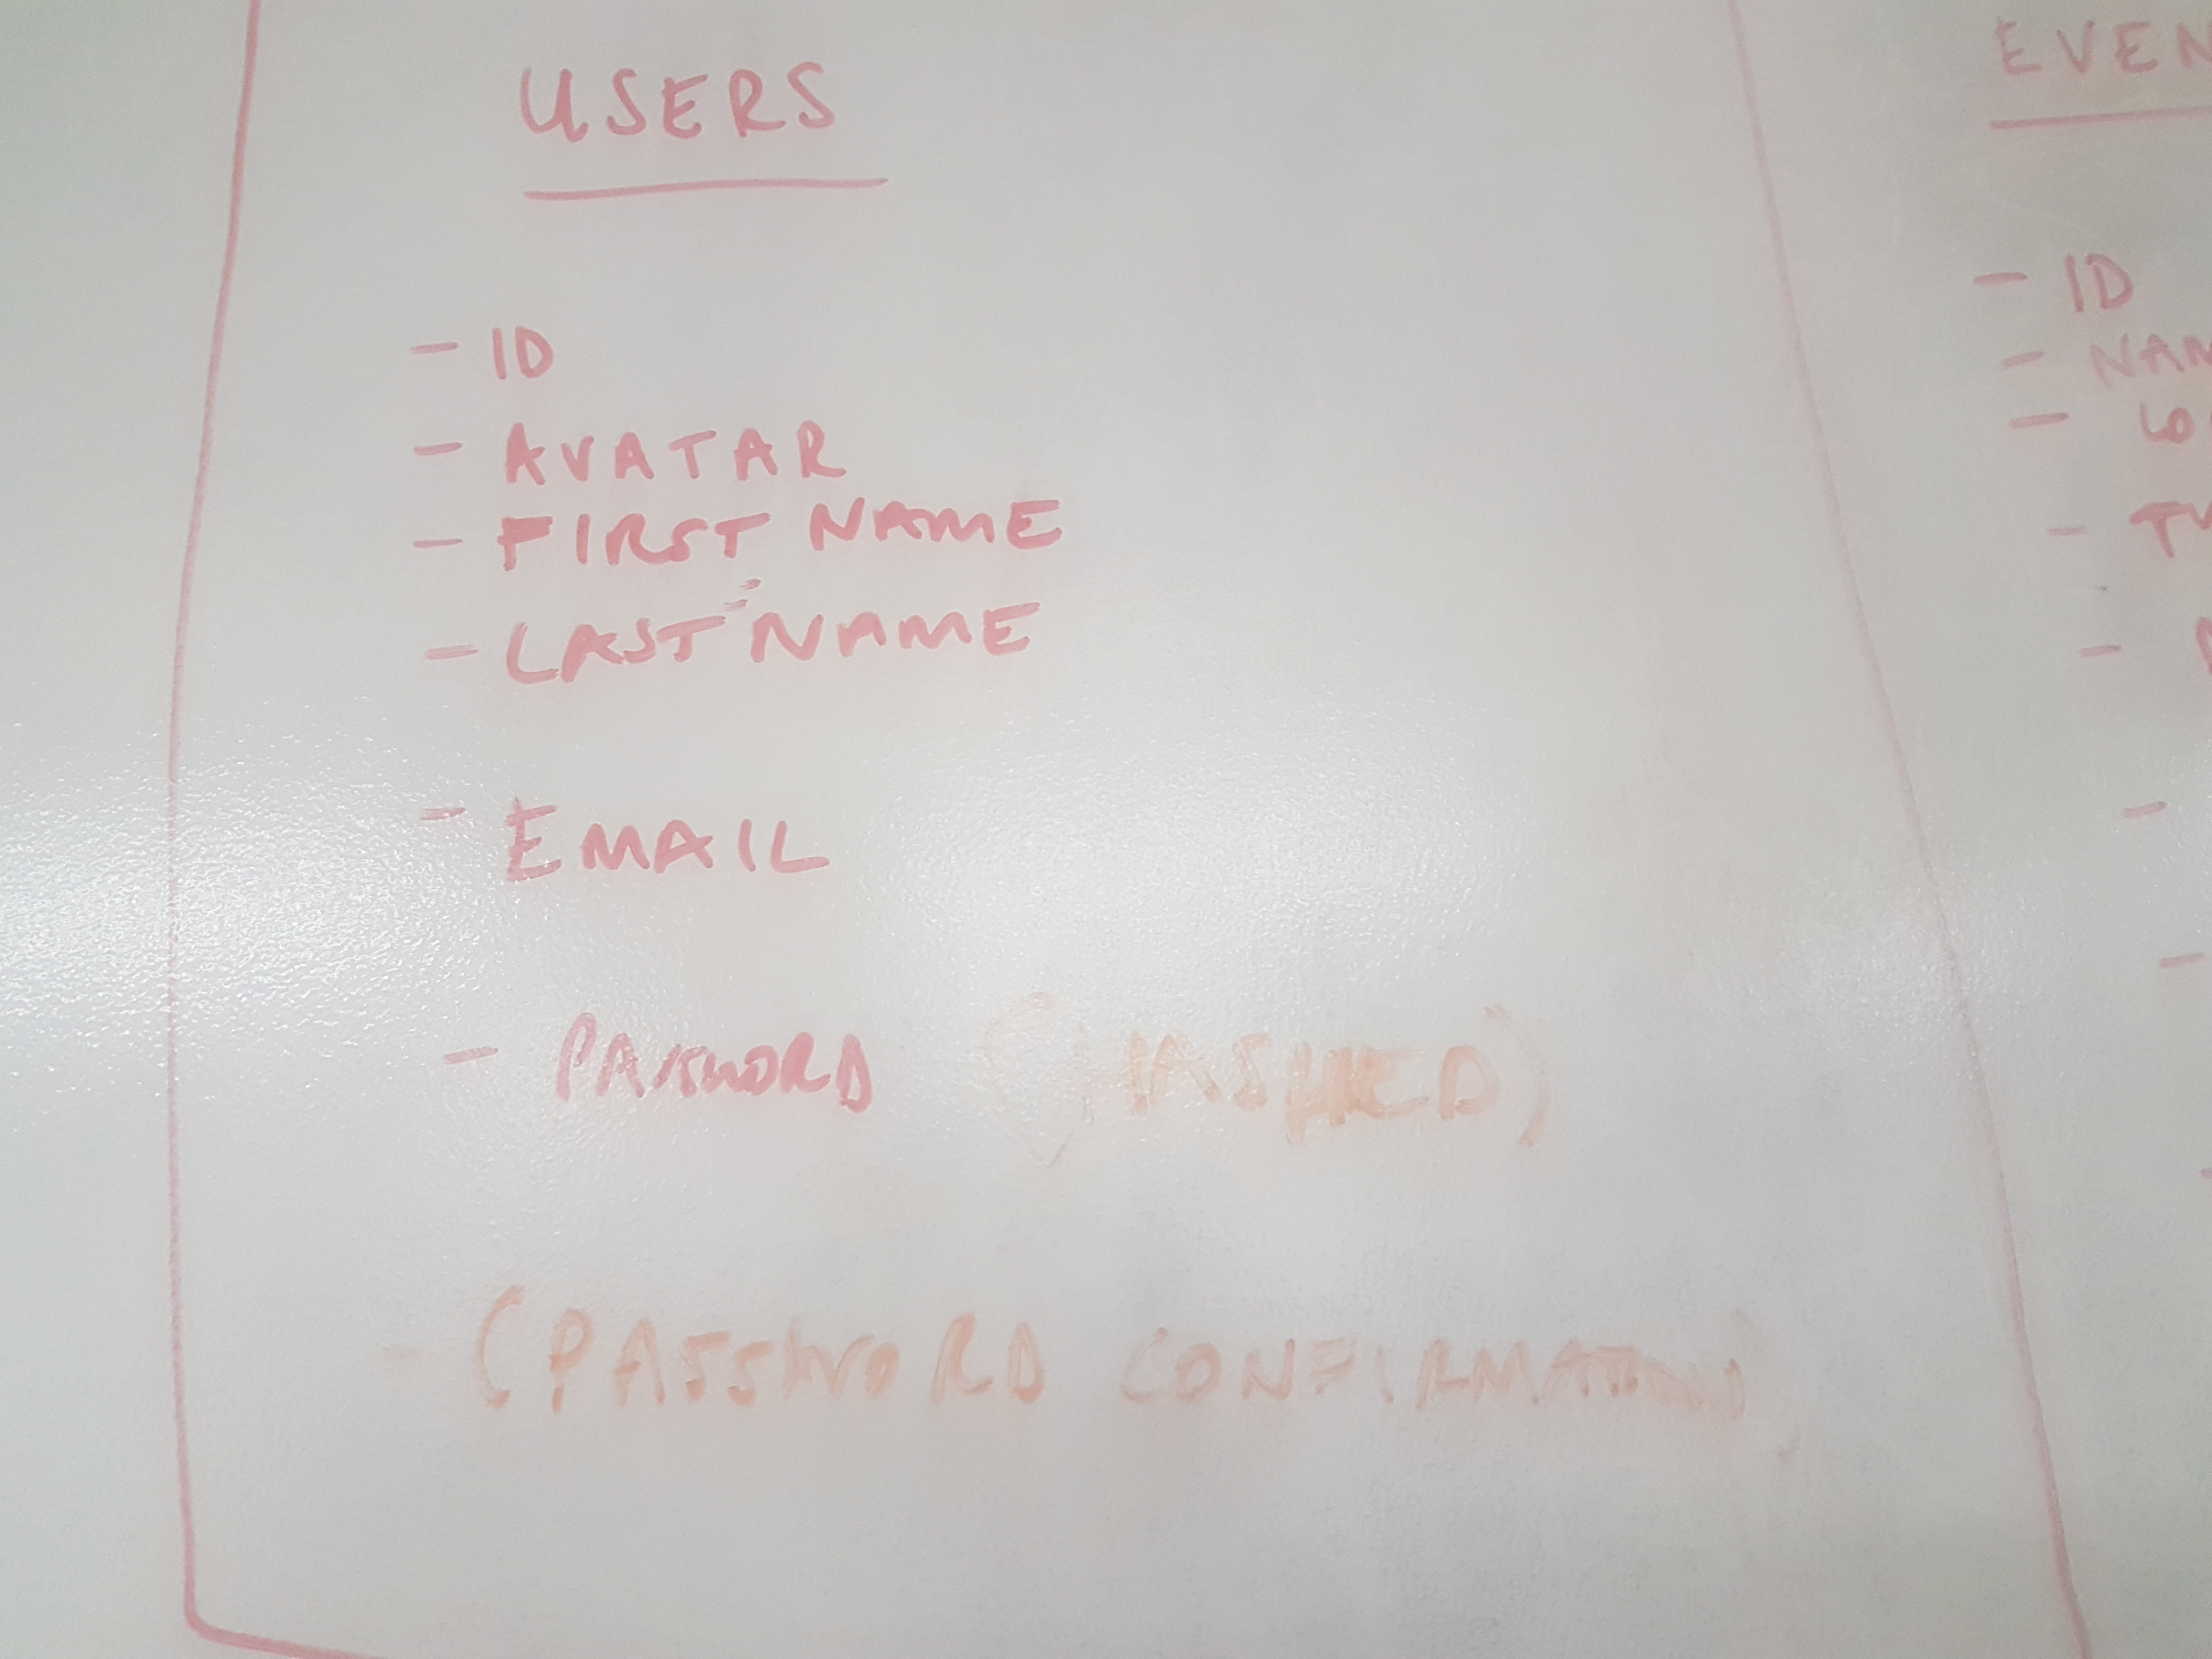 USERS
- ID
- AVATAR
- FIRST NAME
- LAST NAME
- EMAIL
- PASSWORD (HASHED)
- (PASSWORD CONFIRMATION)
EVEN
- ID
- NAM
- LO
- TY